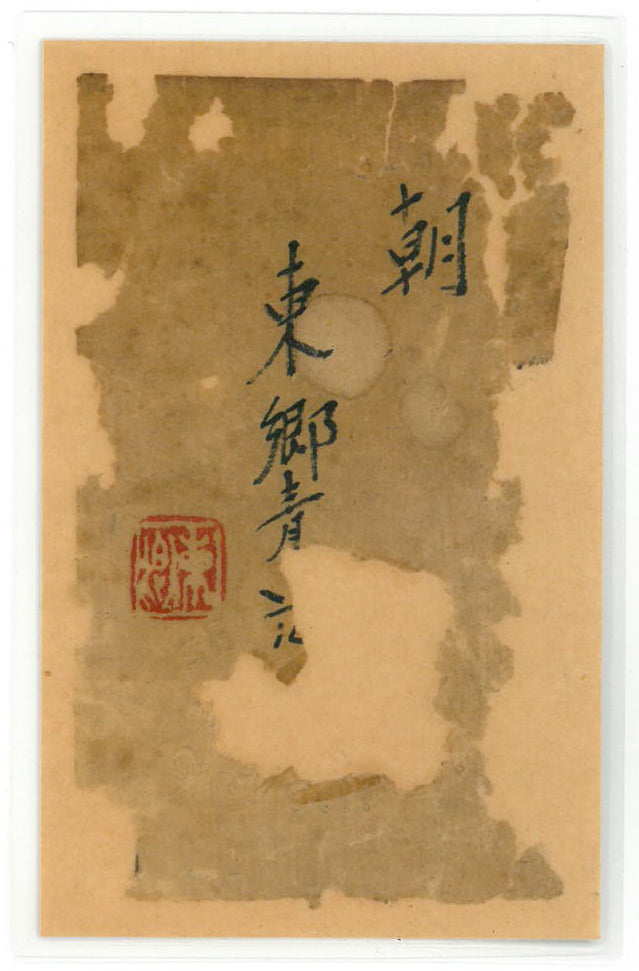 朝
東郷青